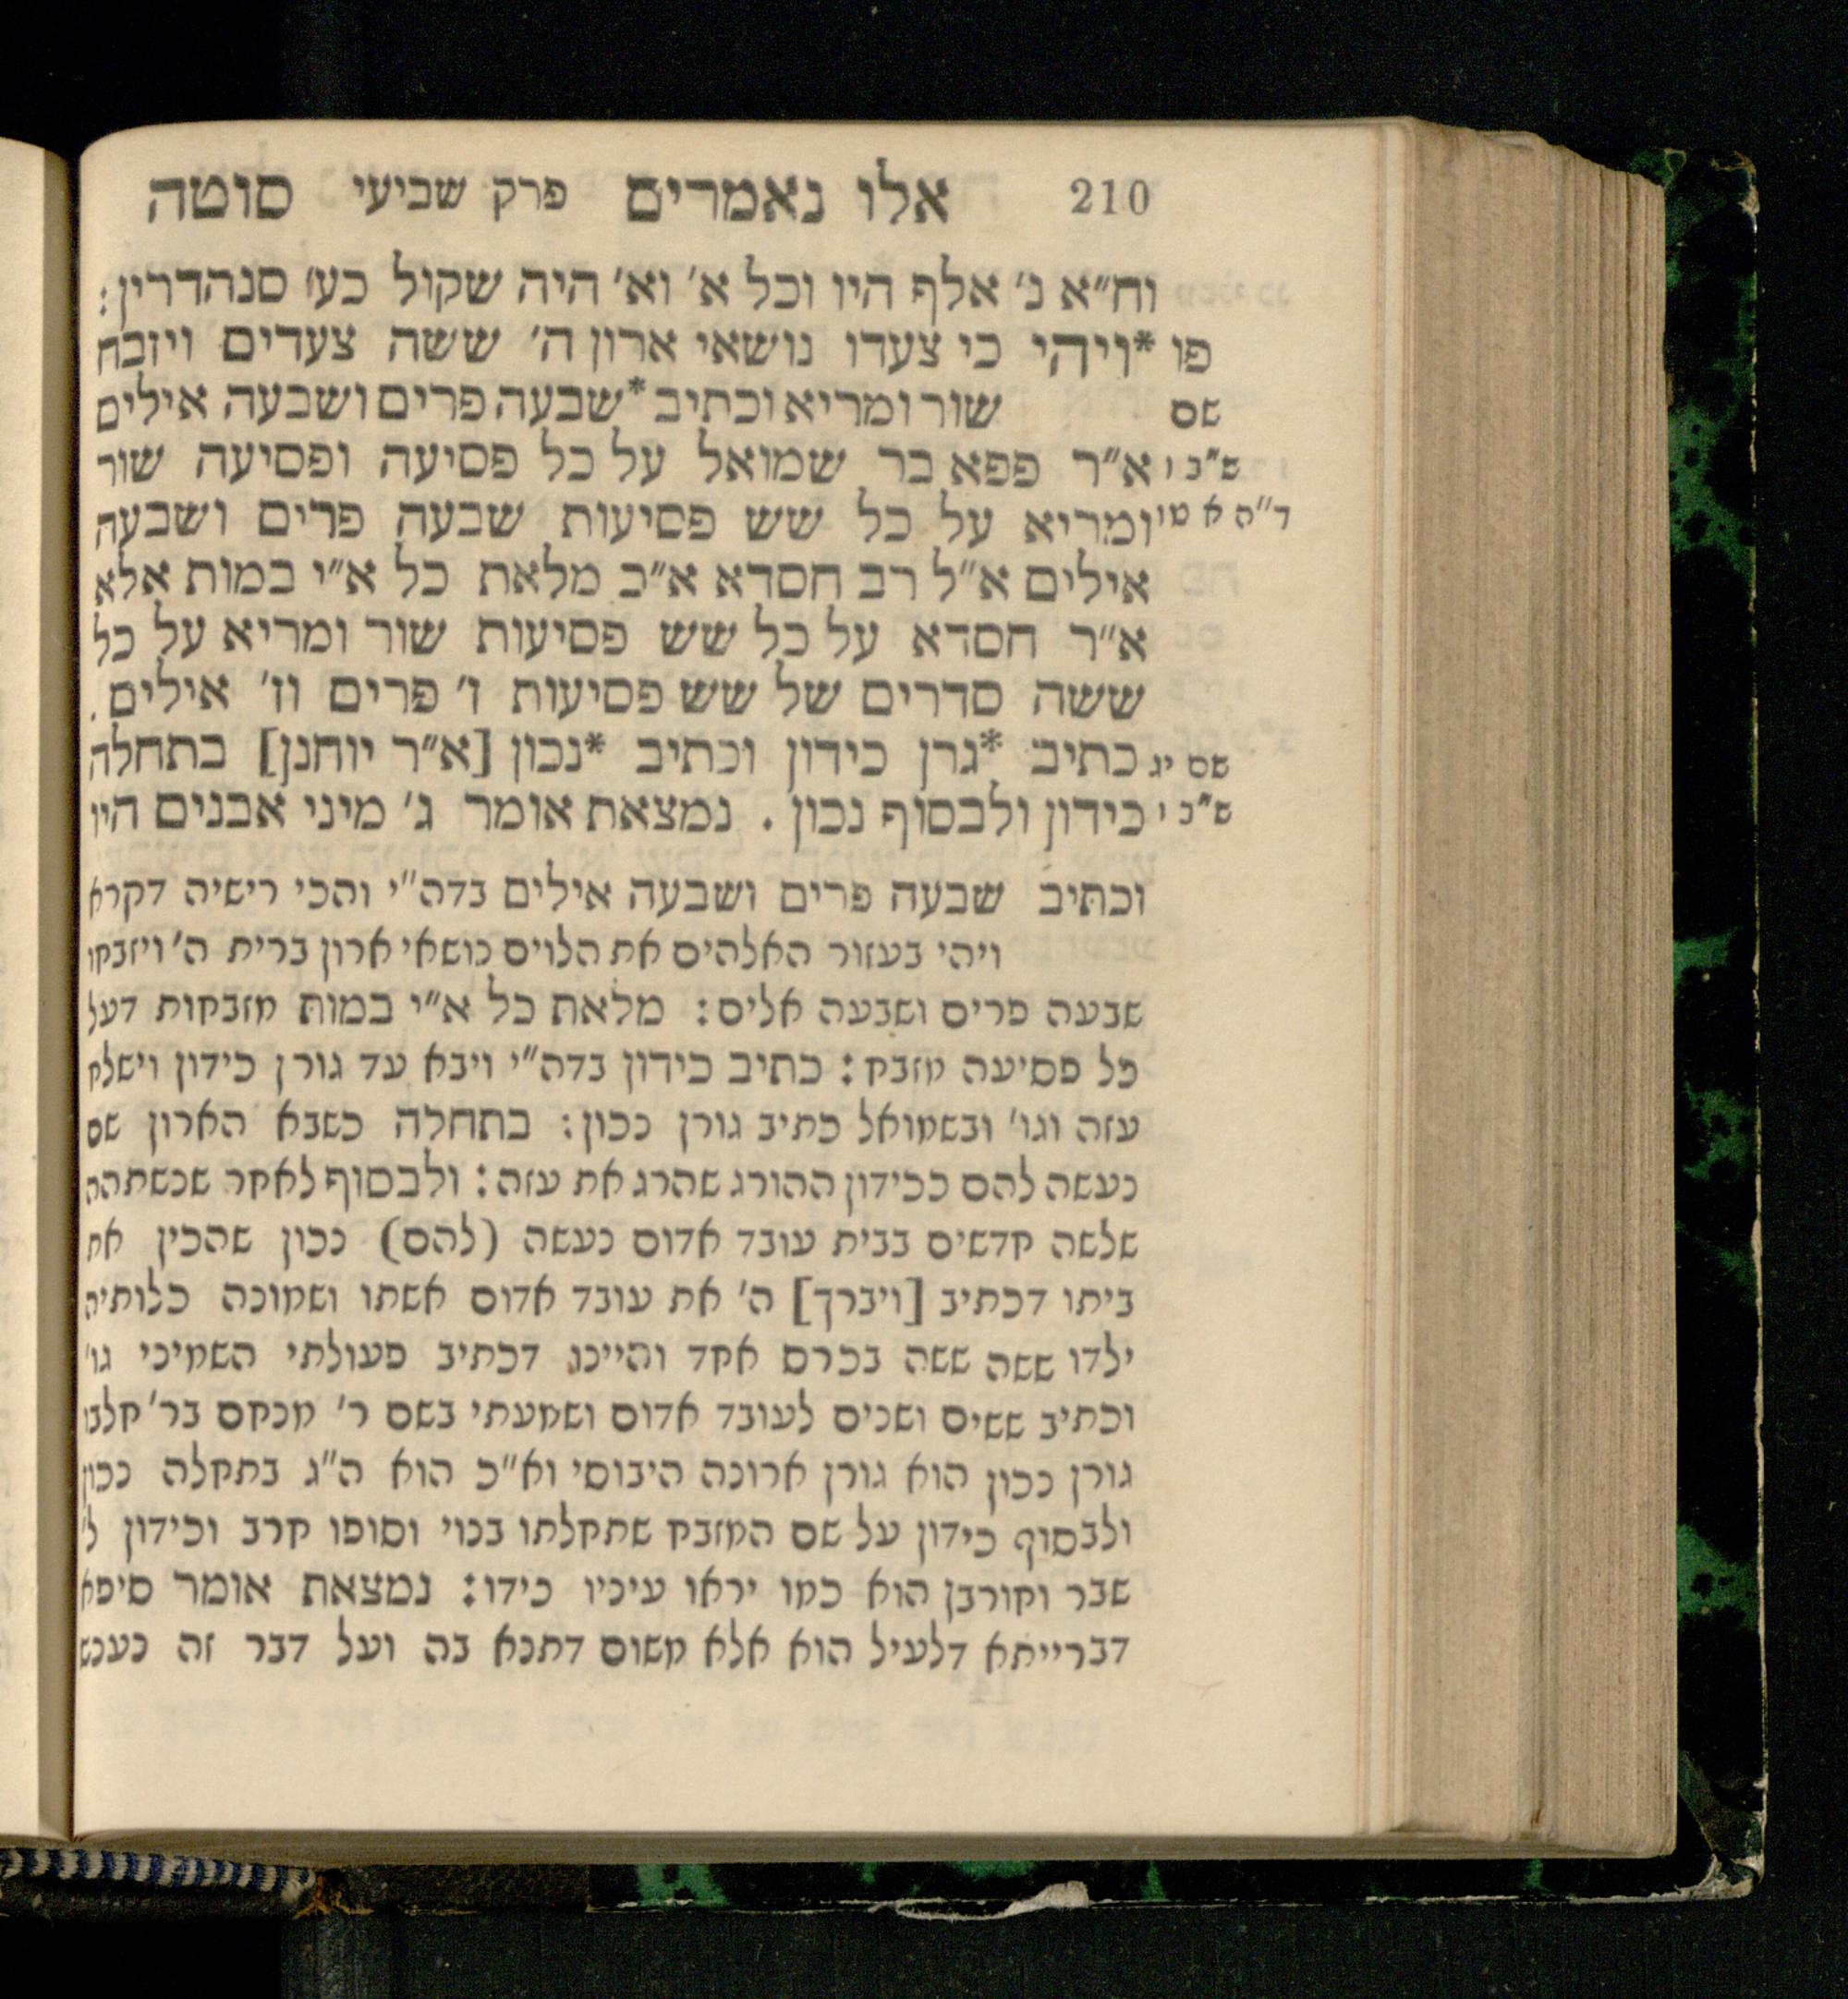 210 אלו נאמרים פרק שביעי סוטה
וח״א נ׳ אלף היו וכל א׳ וא׳ היה שקול כע׳ סנהדרין:
פו *ויהי כי צעדו נושאי ארון ה׳ ששה צעדים ויזבח
שם שור ומריא וכתיב *שבעה פרים ושבעה אילים
ש״ב ו א״ר פפא בר שמואל על כל פסיעה ופסיעה שור
ד״ה א טו ומריא על כל שש פסיעות שבעה פרים ושבעה
אילים א״ל רב חסדא א״כ מלאת כל א״י במות אלא
א״ר חסדא על כל שש פסיעות שור ומריא על כל
ששה סדרים של שש פסיעות ז׳ פרים וז׳ אילים.
שם יג כתיב *גרן כידון וכתיב *נכון [א״ר יוחנן] בתחלה
ש״ב ו כידון ולבסוף נכון. נמצאת אומר ג׳ מיני אבנים היו
וכתיב שבעה פרים ושבעה אילים בדה״י והכי רישיה דקרא
ויהי בעזור האלהים את הלוים נושאי ארון ברית ה׳ ויזבחו
שבעה פרים ושבעה אלים: מלאת כל א״י במות מזבחות דעל
כל פסיעה מזבח: כתיב כידון בדה״י ויבא עד גורן כידון וישלח
עזה וגו׳ ובשמואל כתיב גורן נכון: בתחלה כשבא הארון שם
נעשה להם ככידון ההורג שהרג את עזה: ולבסוף לאחר שנשתהה
שלשה חדשים בבית עובד אדום נעשה (להם) נכון שהכין את
ביתו דכתיב [ויברך] ה׳ את עובד אדום אשתו ושמונה כלותיה
ילדו ששה ששה בכרס אחד והיינו דכתיב פעולתי השמיני גו׳
וכתיב ששים ושנים לעובד אדום ושמעתי בשם ר׳ מנחם בר׳ חלבו
גורן נכון הוא גורן ארונה היבוסי וא״כ הוא ה״ג בתחלה נכון
ולבסוף כידון על שם המזבח שתחלתו בנוי וסופו חרב וכידון ל׳
שבר וחורבן הוא כמו יראו עיניו כידו: נמצאת אומר סיפא
דברייתא דלעיל הוא אלא משום דתנא בה ועל דבר זה נענש